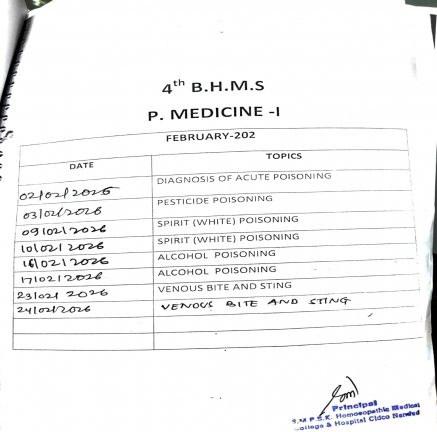 4th B.H.M.S
P. MEDICINE -I
FEBRUARY-202
DATE TOPICS
02/02/2026 DIAGNOSIS OF ACUTE POISONING
03/02/2026 PESTICIDE POISONING
09/02/2026 SPIRIT (WHITE) POISONING
10/02/2026 SPIRIT (WHITE) POISONING
16/02/2026 ALCOHOL POISONING
17/02/2026 ALCOHOL POISONING
23/02/ 2026 VENOUS BITE AND STING
24/02/2026 VENOUS BITE AND STING
Principal
Homoeopathic Medical
College & Hospital Cidco Nanded